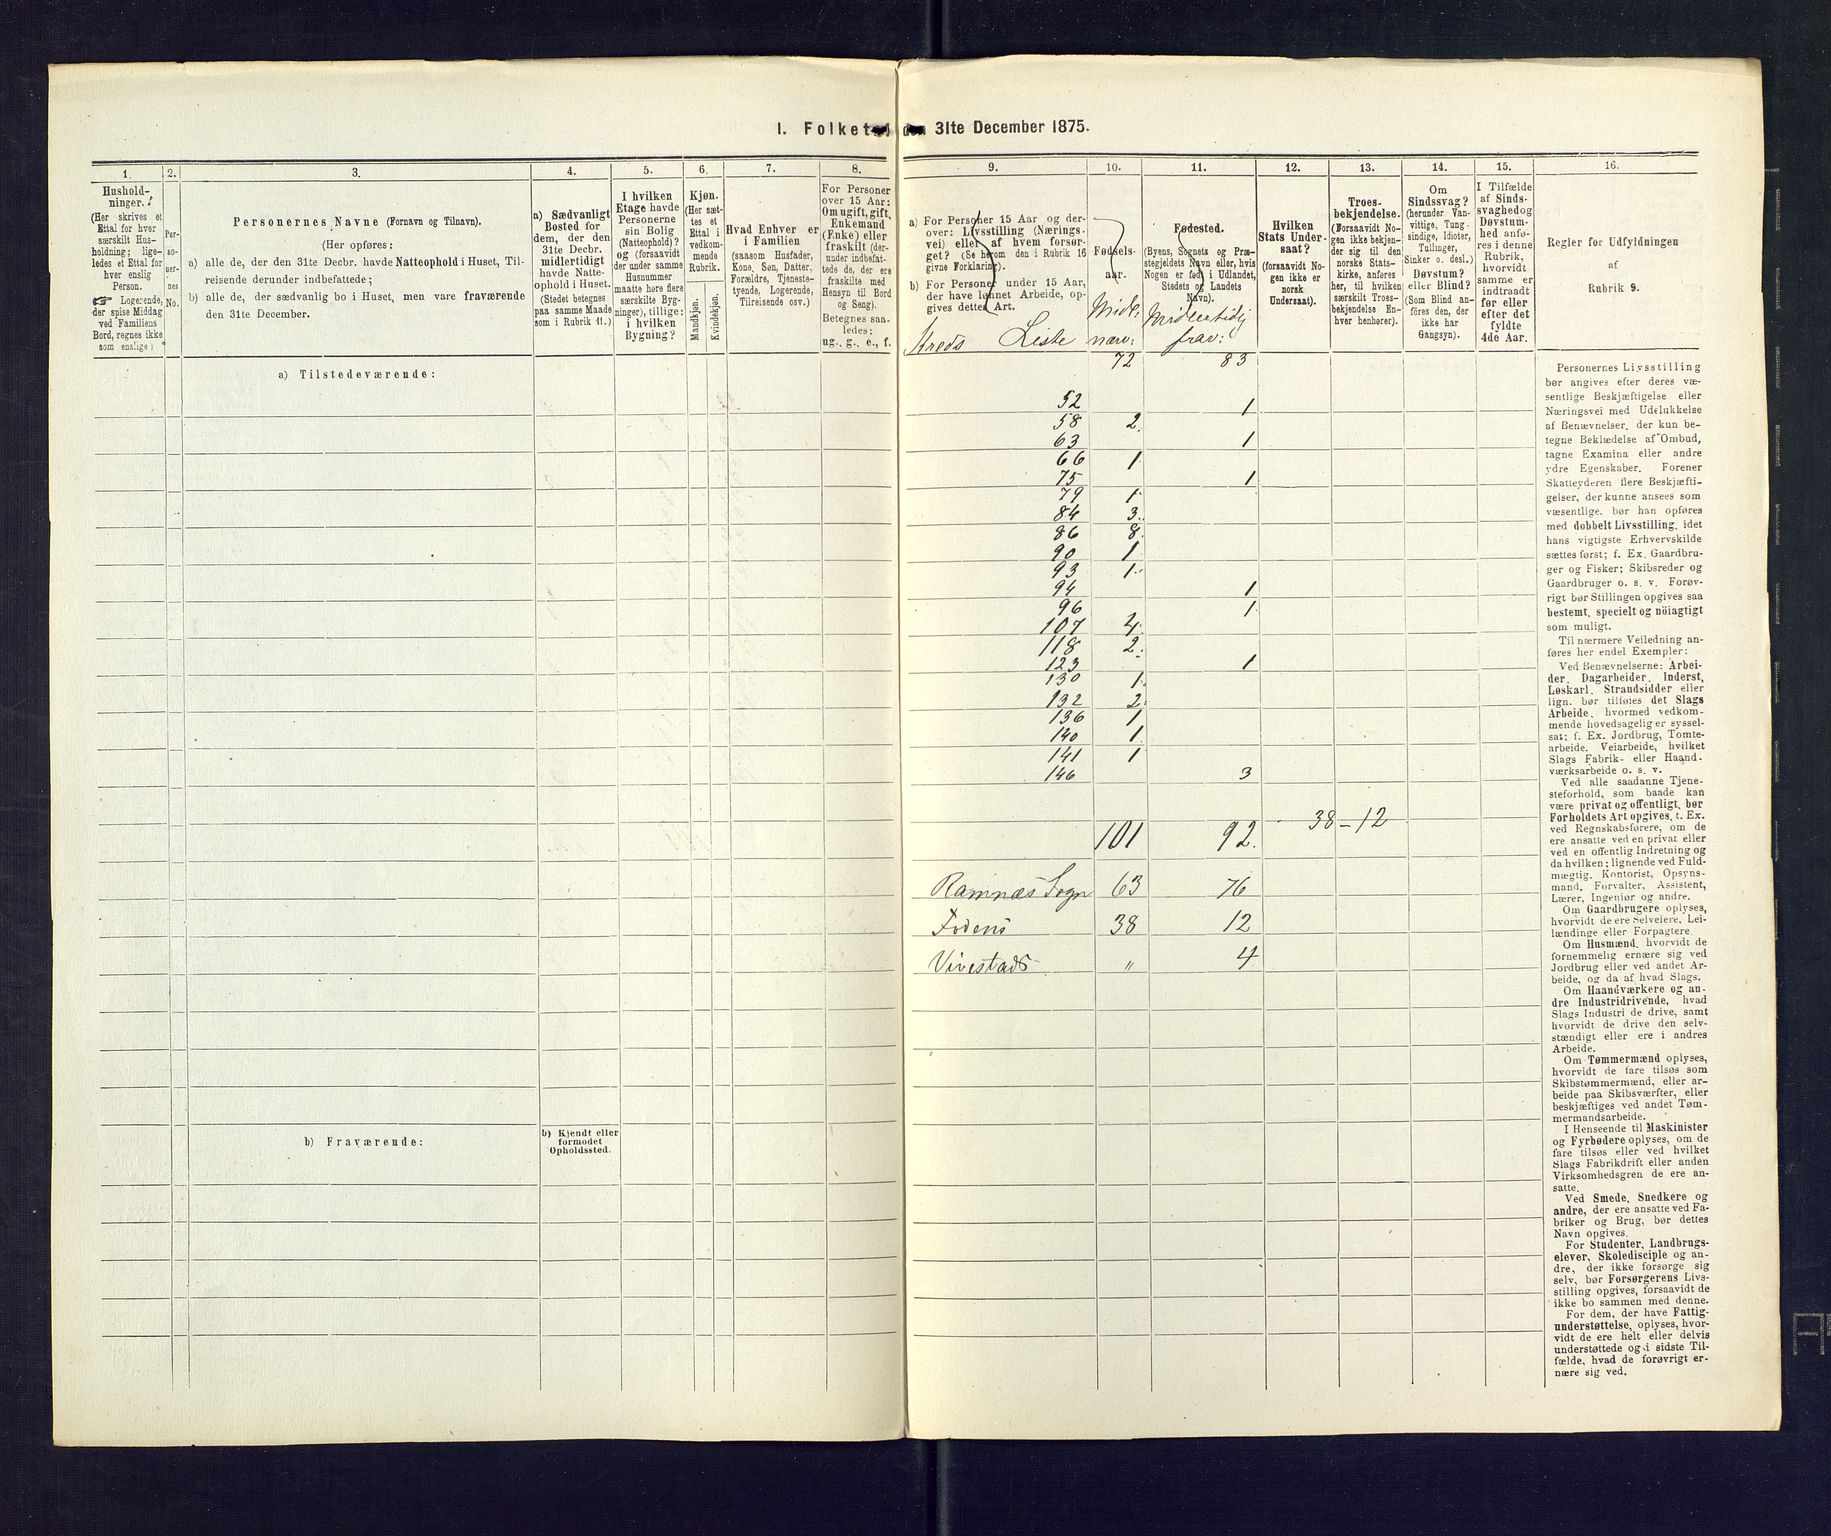 I. Folket den 31te December 1875.
1.
Hushold-
ninger.
(Her skrives et
Ettal for hver
særskilt Hus-
holdning; lige-
ledes et Ettal for
hver enslig
Person.
☞ Logerende,
der spise Middag
ved Familiens
Bord, regnes ikke
som enslige)
2.
Per-
so-
ner-
nes
No.
3.
Personernes Navne (Fornavn og Tilnavn).
(Her opføres:
a) alle de, der den 31te Decbr. havde Natteophold i Huset, Til-
reisende derunder indbefattede;
b) alle de, der sædvanlig bo i Huset, men vare fraværende
den 31te December.
4.
a) Sædvanligt
Bosted for
dem, der den
31te Decbr.
midlertidigt
havde Natte-
ophold i Huset.
(Stedet betegnes
paa samme Maade
som i Rubrik 11.)
5.
I hvilken
Etage havde
Personerne
sin Bolig
(Natteophold)?
og (forsaavidt
der under samme
Husnummer
maatte høre flere
særskilte Byg-
ninger), tillige:
i hvilken
Bygning?
6.
Kjøn.
(Her sæt-
tes et
Ettal i
vedkom-
mende
Rubrik.
Mandkjøn.
Kvindekjøn.
7.
Hvad Enhver er
i Familien
(saasom Husfader,
Kone, Søn, Datter,
Forældre, Tjeneste-
tyende, Logerende,
Tilreisende osv.)
8.
For Personer
over 15 Aar:
Om ugift, gift,
Enkemand
(Enke) eller
fraskilt (der-
under indbefat-
tede de, der ere
fraskilte med
Hensyn til Bord
og Seng).
Betegnes saa-
ledes:
ug., g., e., f.
9.
a) For Personer 15 Aar og der-
over: Livsstilling (Nærings-
vei) eller af hvem forsør-
get? (Se herom den i Rubrik 16
givne Forklaring).
b) For Personer under 15 Aar,
der have lønnet Arbeide, op-
gives dettes Art.
Kreds Liste
10.
Fødsels-
aar.
Midl.
nærv:
11.
Fødested.
(Byens, Sognets og Præ-
stegjeldets Navn eller, hvis
Nogen er født i Udlandet,
Stedets og Landets
Navn).
Midlertidig
frav:
12.
Hvilken
Stats Under-
saat?
(forsaavidt No-
gen ikke er
norsk
Undersaat).
13.
Troes-
bekjendelse.
(Forsaavidt No-
gen ikke bekjen-
der sig til den
norske Stats-
kirke, anføres
her, til hvilken
særskilt Troes-
bekjendelse En-
hver henhører).
14.
Om
Sindssvag?
(herunder Van-
vittige, Tung-
sindige, Idioter,
Tullinger,
Sinker o. desl.)
Døvstum?
eller Blind?
(Som Blind an-
føres den, der
ikke har
Gangsyn).
15.
I Tilfælde
af Sinds-
svaghed og
Døvstum-
hed anfø-
res i denne
Rubrik,
hvorvidt
samme er
indtraadt
før eller
efter det
fyldte
4de Aar.
16.
Regler for Udfyldningen
af
Rubrik 9.
72 83
a) Tilstedeværende:
52 1
58 2.
63 1
66 1.
75 1
79 1.
84 3.
86 8.
90 1.
93 1.
94 1
96 1.
107 4.
118 2.
123 1
130 1.
132 2.
136 1
140 1.
141 1
146 3
38-12
101 92.
Ramnæs Sogn 63 76
Fodens 38 12
Vivestads „ 4
b) Fraværende:
b) Kjendt eller
formodet
Opholdssted.
Personernes Livsstilling
bør angives efter deres væ-
sentlige Beskjæftigelse eller
Næringsvei med Udelukkelse
af Benævnelser, der kun be-
tegne Beklædelse af Ombud,
tagne Examina eller andre
ydre Egenskaber. Forener
Skatteyderen flere Beskjæfti-
gelser, der kunne ansees som
væsentlige, bør han opføres
med dobbelt Livsstilling, idet
hans vigtigste Erhvervskilde
sættes først; f. Ex. Gaardbru-
ger og Fisker; Skibsreder og
Gaardbruger o. s. v. Forøv-
rigt bør Stillingen opgives saa
bestemt, specielt og nøiagtigt
som muligt.
Til nærmere Veiledning an-
føres her endel Exempler:
Ved Benævnelserne: Arbei-
der, Dagarbeider, Inderst,
Løskarl, Strandsidder eller
lign. bør tilføies det Slags
Arbeide, hvormed vedkom-
mende hovedsagelig er syssel-
sat; f. Ex. Jordbrug, Tomte-
arbeide, Veiarbeide, hvilket
Slags Fabrik- eller Haand-
værksarbeide o. s. v.
Ved alle saadanne Tjene-
steforhold, som baade kan
være privat og offentligt, bør
Forholdets Art opgives, f. Ex.
ved Regnskabsførere, om de
ere ansatte ved en privat eller
ved en offentlig Indretning og
da hvilken; lignende ved Fuld-
mægtig, Kontorist, Opsyns-
mand, Forvalter, Assistent,
Lærer, Ingeniør og andre.
Om Gaardbrugere oplyses,
hvorvidt de ere Selveiere, Lei-
lændinge eller Forpagtere.
Om Husmænd, hvorvidt de
fornemmelig ernære sig ved
Jordbrug eller ved andet Ar-
beide, og da af hvad Slags.
Om Haandværkere og an-
dre Industridrivende, hvad
Slags Industri de drive, samt
hvorvidt de drive den selv-
stændigt eller ere i andres
Arbeide.
Om Tømmermænd oplyses,
hvorvidt de fare tilsøs som
Skibstømmermænd, eller ar-
beide paa Skibsværfter, eller
beskjæftiges ved andet Tøm-
mermandsarbeide.
I Henseende til Maskinister
og Fyrbødere oplyses, om de
fare tilsøs eller ved hvilket
Slags Fabrikdrift eller anden
Virksomhedsgren de ere an-
satte.
Ved Smede, Snedkere og
andre, der ere ansatte ved Fa-
briker og Brug, bør dettes
Navn opgives.
For Studenter, Landbrugs-
elever, Skoledisciple og an-
dre, der ikke forsørge sig
selv, bør Forsørgerens Livs-
stilling opgives, forsaavidt de
ikke bo sammen med denne.
For dem, der have Fattig-
understøttelse, oplyses, hvor-
vidt de ere helt eller delvis
understøttede og i sidste Til-
fælde, hvad de forøvrigt er-
nære sig ved.